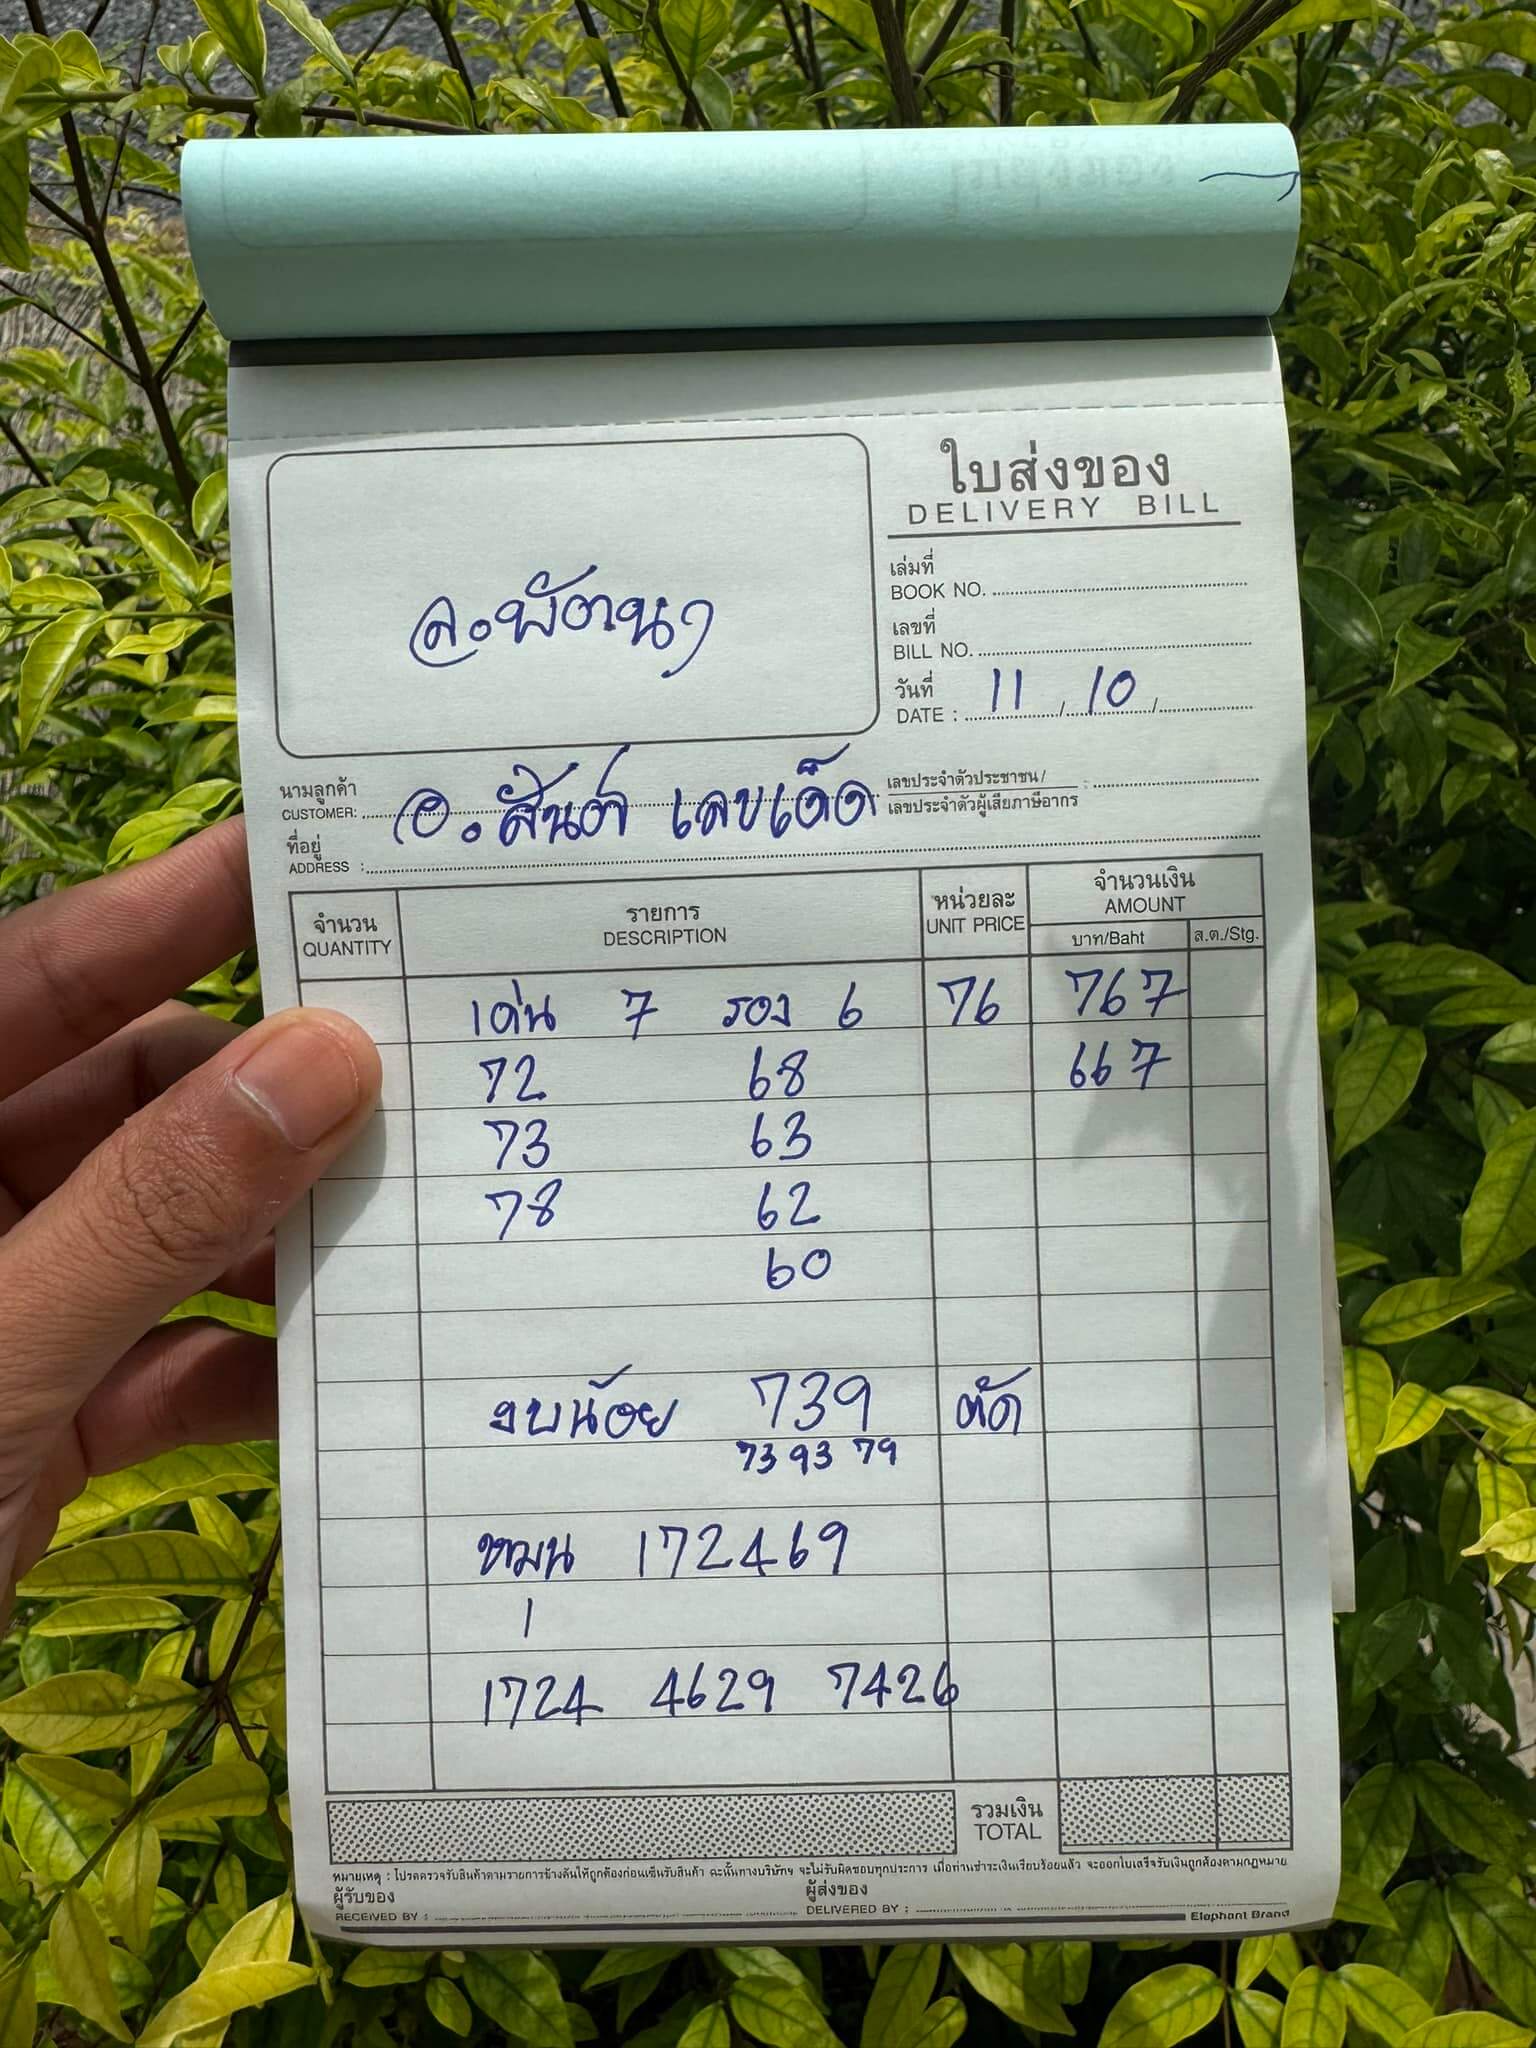 ใบส่งของ
DELIVERY BILL
เล่มที่
BOOK NO.
เลขที่
BILL NO.
จ.พัฒนา
วันที่
DATE : 11 / 10 /
นามลูกค้า
CUSTOMER: อ. สันต์ เลขเด็ด
เลขประจำตัวประชาชน /
เลขประจำตัวผู้เสียภาษีอากร :
ที่อยู่
ADDRESS :
จำนวน รายการ หน่วยละ จำนวนเงิน
QUANTITY DESCRIPTION UNIT PRICE AMOUNT
บาท/Baht ส.ต./Stg.
เด่น 7 รอง 6 76 767
72 68 667
73 63
78 62
60
งบน้อย 739 ตัด
73 93 79
หมุน 172469
1
1724 4629 7426
รวมเงิน
TOTAL
หมายเหตุ : โปรดตรวจรับสินค้าตามรายการข้างต้นให้ถูกต้องก่อนเซ็นรับสินค้า ฉะนั้นทางบริษัทฯ จะไม่รับผิดชอบทุกประการ เมื่อท่านชำระเงินเรียบร้อยแล้ว จะออกใบเสร็จรับเงินถูกต้องตามกฎหมาย
ผู้รับของ ผู้ส่งของ
RECEIVED BY : DELIVERED BY :
Elephant Brand